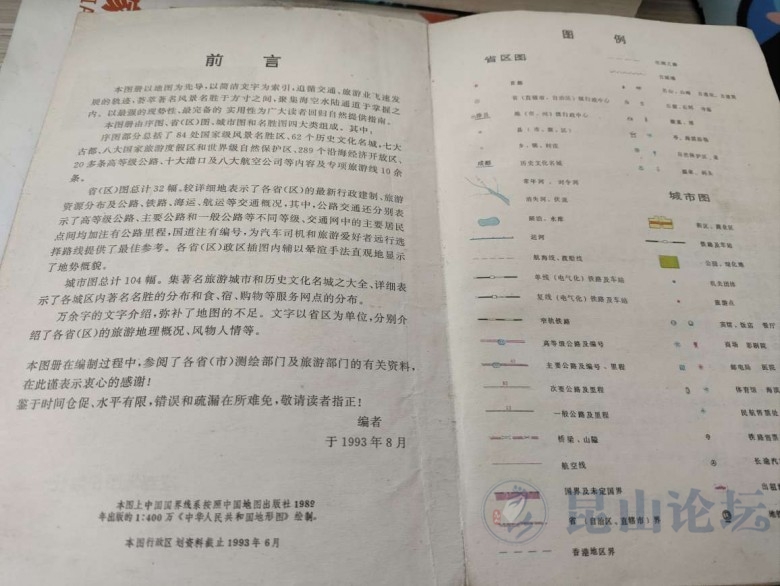 前言
本图册以地图为先导,以简洁文字为索引,追循交通、旅游业飞速发
展的轨迹,荟萃著名风景名胜于方寸之间,聚集海空水陆通道于掌握之
内。以最强的现势性、最完备的 实用性为广大读者回归自然提供指南。
本图册由序图、省(区)图,城市图和名胜图四大类组成。其中,
序图部分总括了84处国家级风景名胜区、62个历史文化名城、七大
古都、八大国家旅游度假区和世界级自然保护区、289个沿海经济开放区、
20多条高等级公路、十大港口及八大航空公司等内容及专项旅游线10余
条。
省(区)图总计32幅、较详细地表示了各省(区)的最新行政建制、旅游
资源分布及公路、铁路、海运、航运等交通概况,其中,公路交通还分别表
示了高等级公路、主要公路和一般公路等不同等级、交通网中的主要居民
点间均加注有公路里程,国道注有编号,为汽车司机和旅游爱好者远行选
择路线提供了最佳参考。各省(区)政区插图内辅以晕渲手法直观地显示
了地势概貌。
城市图总计104幅。集著名旅游城市和历史文化名城之大全、详细表
示了各城区内著名名胜的分布和食、宿、购物等服务网点的分布。
万余字的文字介绍,弥补了地图的不足。文字以省区为单位,分别介
绍了各省(区)的旅游地理概况、风物人情等。
本图册在编制过程中,参阅了各省(市)测绘部门及旅游部门的有关资料,
在此谨表示衷心的感谢!
鉴于时间仓促、水平有限,错误和疏漏在所难免,敬请读者指正!
编者
于1993年8月
本图上中国国界线系按照中国地图出版社1989
年出版的1:400万《中华人民共和国地形图》绘制。
本图行政区划资料截止1993年6月
图例
省区图
首都
省(直辖市、自治区)级行政中心
县(市、区)
乡、镇、村庄
成都 历史文化名城
常年河、时令河
湖泊、水库
运河
航海线、渡轮线
单线(电气化)铁路及车站
复线(电气化)铁路及车站
窄轨铁路
高等级公路及编号
主要公路及编号、里程
次要公路及里程
一般公路及里程
桥梁、山隘
航空线
国界及未定国界
省(自治区、直辖市)界
香港地区界
城市图
街区、
铁路及车站
公园、绿化地
机关团体
旅游点
宾馆、饭店 餐厅
商场 影剧院
邮电局 医院
体育馆
民航售票处
昆山论坛